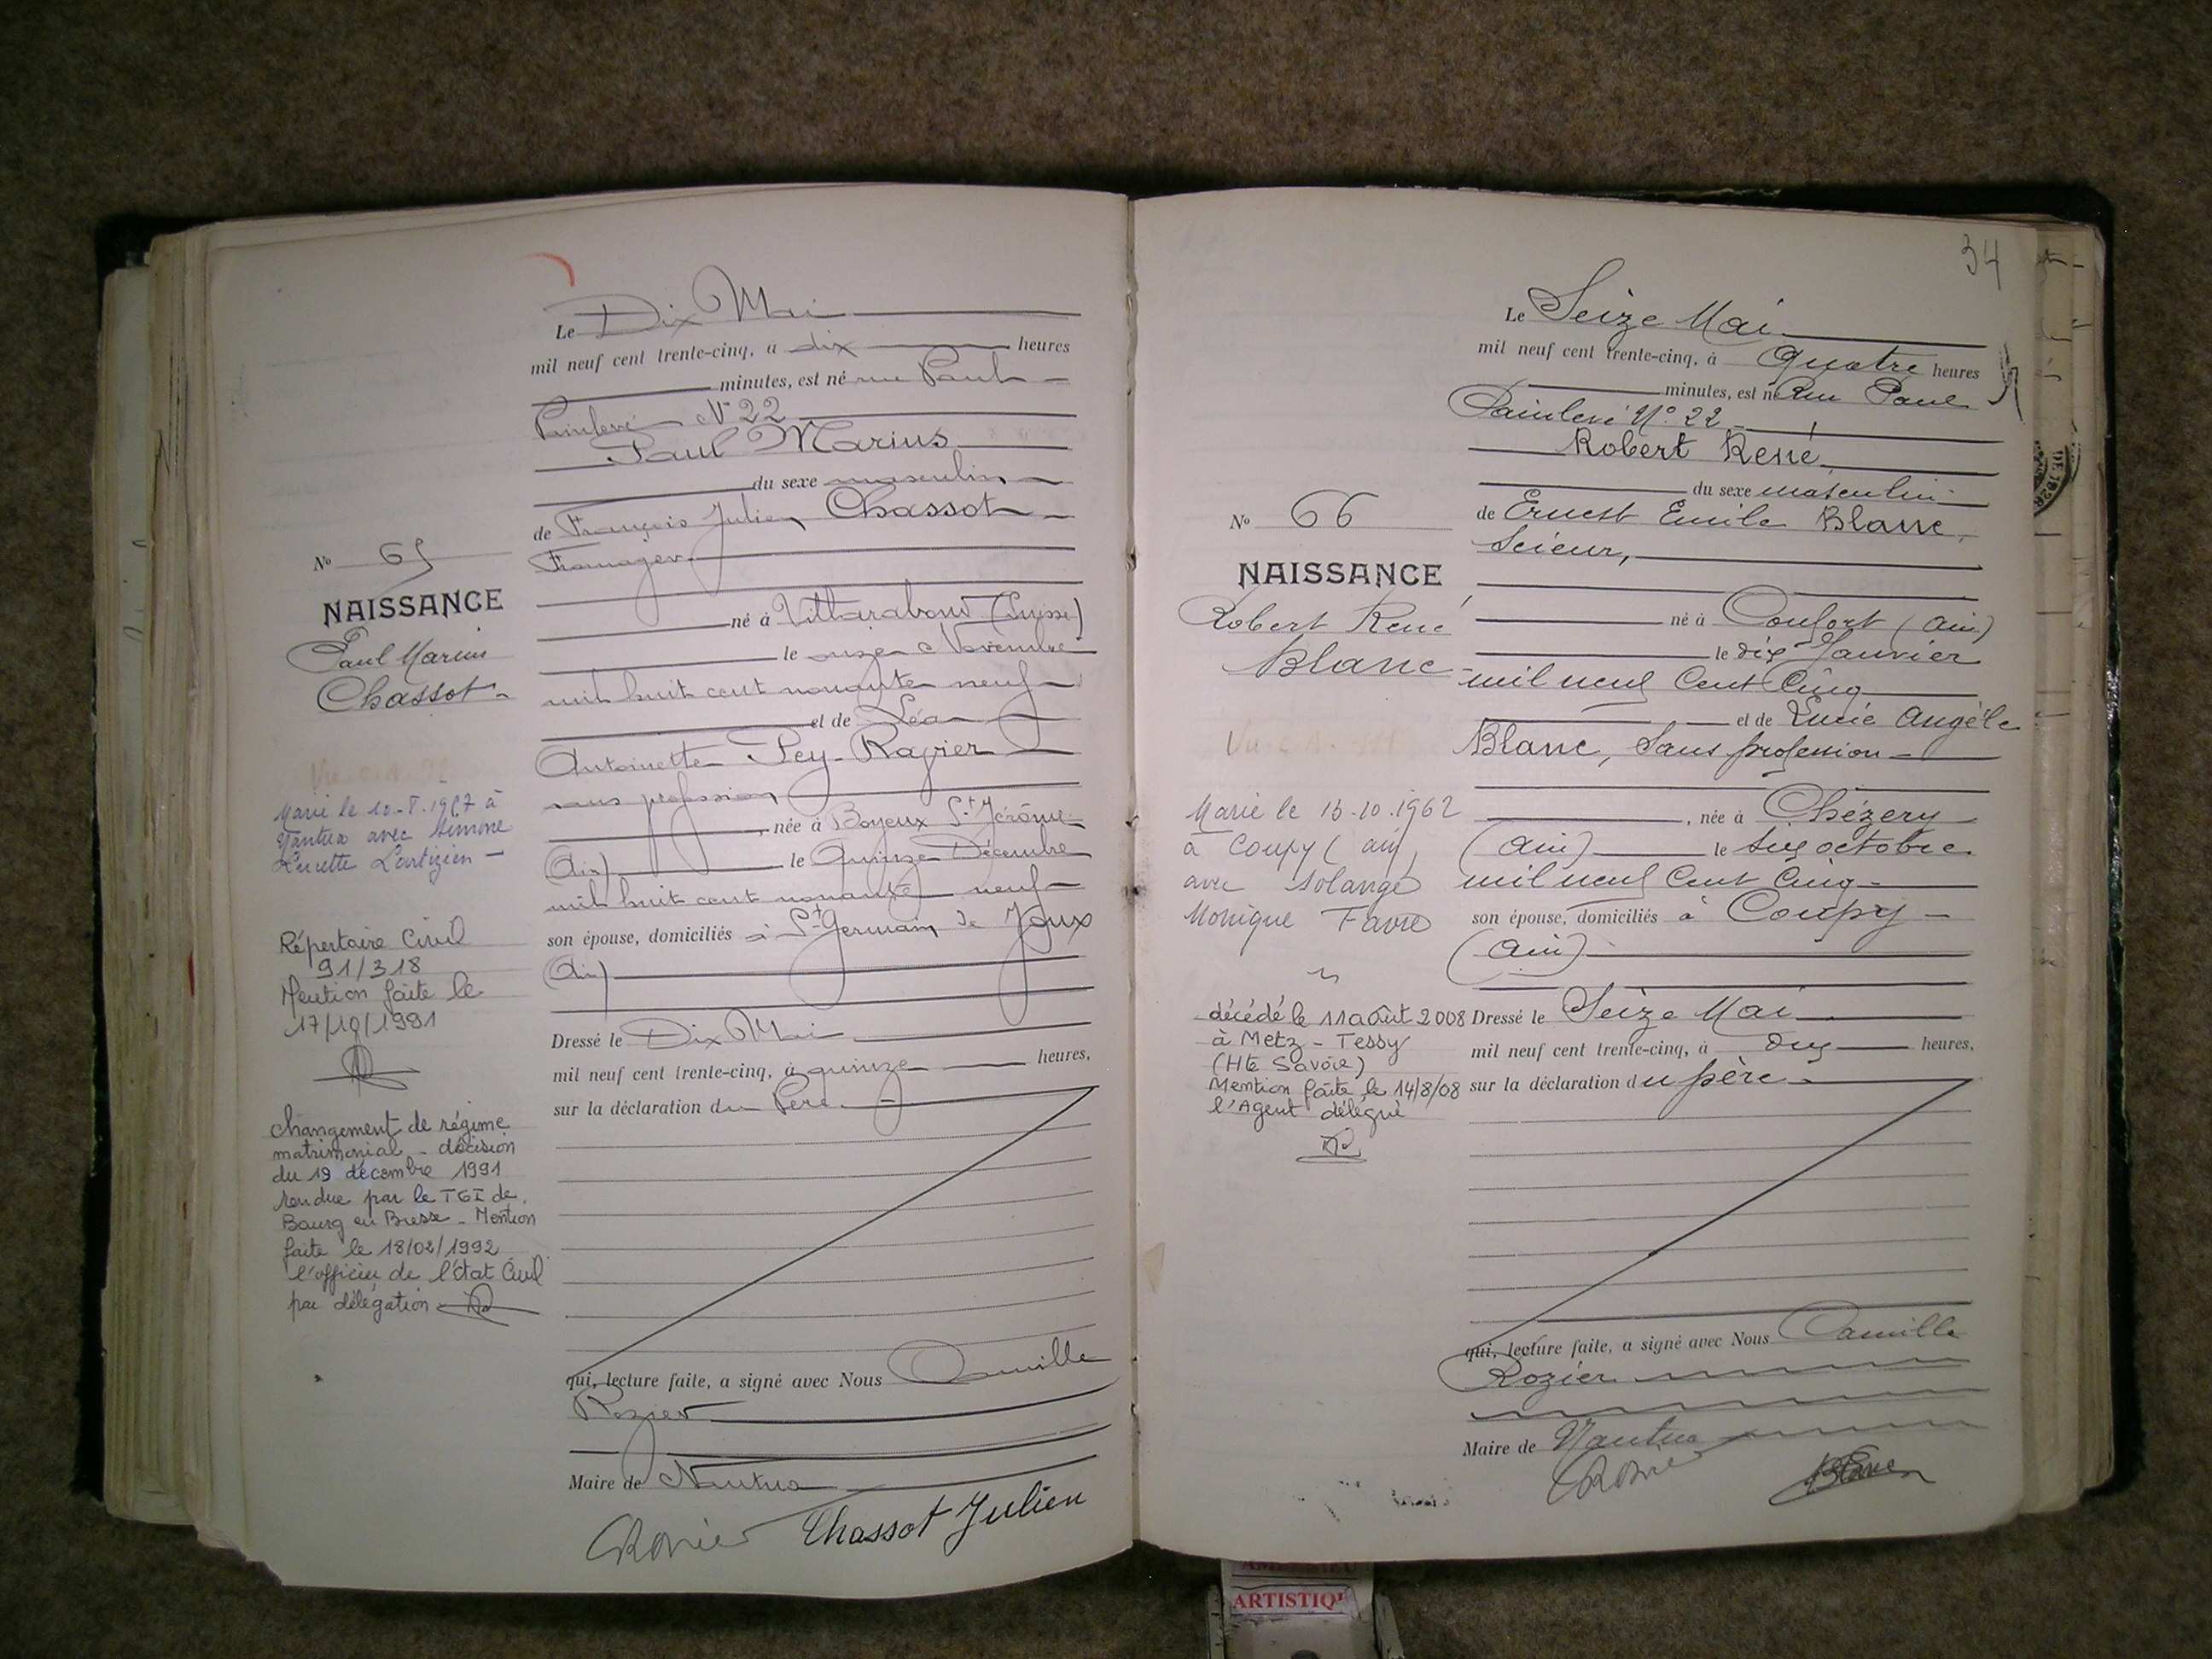 Le Dix Mai
mil neuf cent trente-cinq, à dix heures
minutes, est né rue Paul
Painlevé N° 22
Paul Marius
du sexe masculin
de François Julien Chassot
Fromager
né à Villaraboud (Suisse)
le onze Novembre
mil huit cent nonante neuf
et de Léa
Antoinette Pey-Ragier
sans profession
, née à Boyeux St Jérôme
(Ain) le Quinze Décembre
mil huit cent nonante neuf
son épouse, domiciliés à St Germain de Joux
(Ain)
Dressé le Dix Mai
mil neuf cent trente-cinq, à quinze heures,
sur la déclaration du Père
qui, lecture faite, a signé avec Nous Camille
Rozier
Maire de Nantua
CRozier Chassot Julien
N° 65
NAISSANCE
Paul Marius
Chassot
Marié le 10-
Nantua avec Simone
Lucette
Répertoire Civil
91/318
Mention faite le
17/10/1991
Changement de régime
matrimonial - décision
du 19 décembre 1991
rendue par le TGI de
Bourg en Bresse - Mention
faite le 18/02/1992
l'officier de l'état Civil
par délégation
34
Le Seize Mai
mil neuf cent trente-cinq, à Quatre heures
minutes, est né Rue Paul
Painlevé N° 22
Robert René
du sexe masculin
de Ernest Emile Blanc,
Scieur,
né à Confort (Ain)
le dix Janvier
mil neuf Cent Cinq
et de Lucie Angèle
Blanc, Sans profession
, née à Chézery
(Ain) le six octobre
mil neuf Cent Cinq
son épouse, domiciliés à Coupy
(Ain)
Dressé le Seize Mai
mil neuf cent trente-cinq, à dix heures,
sur la déclaration du père
qui, lecture faite, a signé avec Nous Camille
Rozier
Maire de Nantua
CRozier Blanc
N° 66
NAISSANCE
Robert René
Blanc
Marié le 13-10-1962
à Coupy (Ain)
avec Solange
Monique Favre
décédé le 11 août 2008
à Metz-Tessy
(Hte Savoie)
Mention faite le 14/8/08
l'Agent délégué
ARTISTIQ